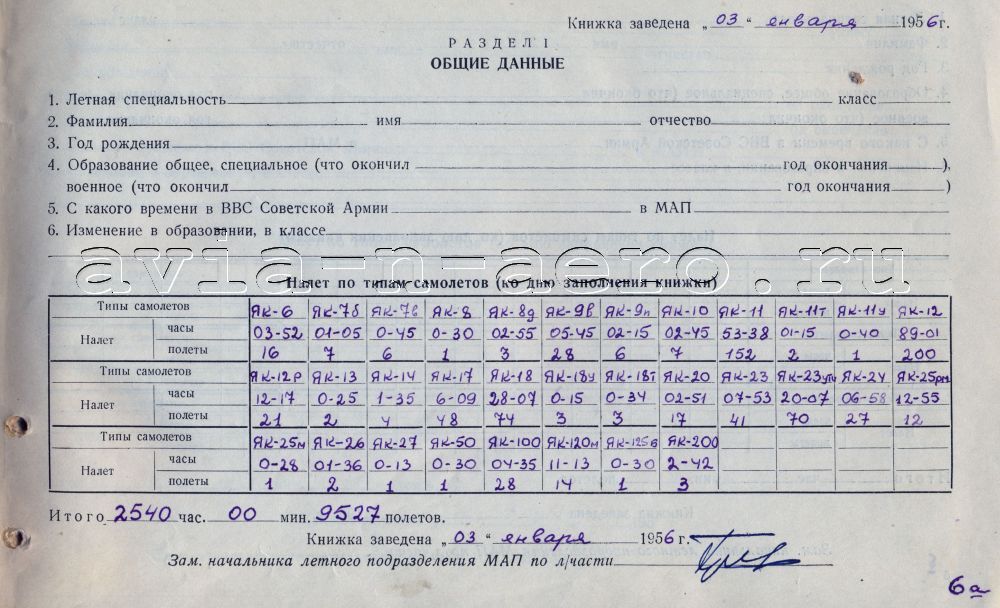 Книжка заведена „03“ января 1956 г.
РАЗДЕЛ I
ОБЩИЕ ДАННЫЕ
1. Летная специальность класс
2. Фамилия имя отчество
3. Год рождения
4. Образование общее, специальное (что окончил год окончания ),
военное (что окончил год окончания )
5. С какого времени в ВВС Советской Армии в МАП
6. Изменение в образовании, в классе
avia-n-aero.ru
Налет по типам самолетов (ко дню заполнения книжки)
Типы самолетов Як-6 Як-7б Як-7в Як-8 Як-8д Як-9в Як-9п Як-10 Як-11 Як-11т Як-11у Як-12
Налет часы 03-52 01-05 0-45 0-30 02-55 05-45 02-15 02-45 53-38 01-15 0-40 89-01
полеты 16 7 6 1 3 28 6 7 152 2 1 200
Типы самолетов Як-12р Як-13 Як-14 Як-17 Як-18 Як-18у Як-18т Як-20 Як-23 Як-23ути Як-24 Як-25рм
Налет часы 12-17 0-25 1-35 6-09 28-07 0-15 0-34 02-51 07-53 20-07 06-58 12-55
полеты 21 2 4 48 74 3 3 17 41 70 27 12
Типы самолетов Як-25м Як-26 Як-27 Як-50 Як-100 Як-120м Як-125в Як-200
Налет часы 0-28 01-36 0-13 0-30 04-35 11-13 0-30 2-42
полеты 1 2 1 1 28 14 1 3
Итого 2540 час. 00 мин. 9527 полетов.
Книжка заведена „03“ января 1956 г.
Зам. начальника летного подразделения МАП по л/части
6а